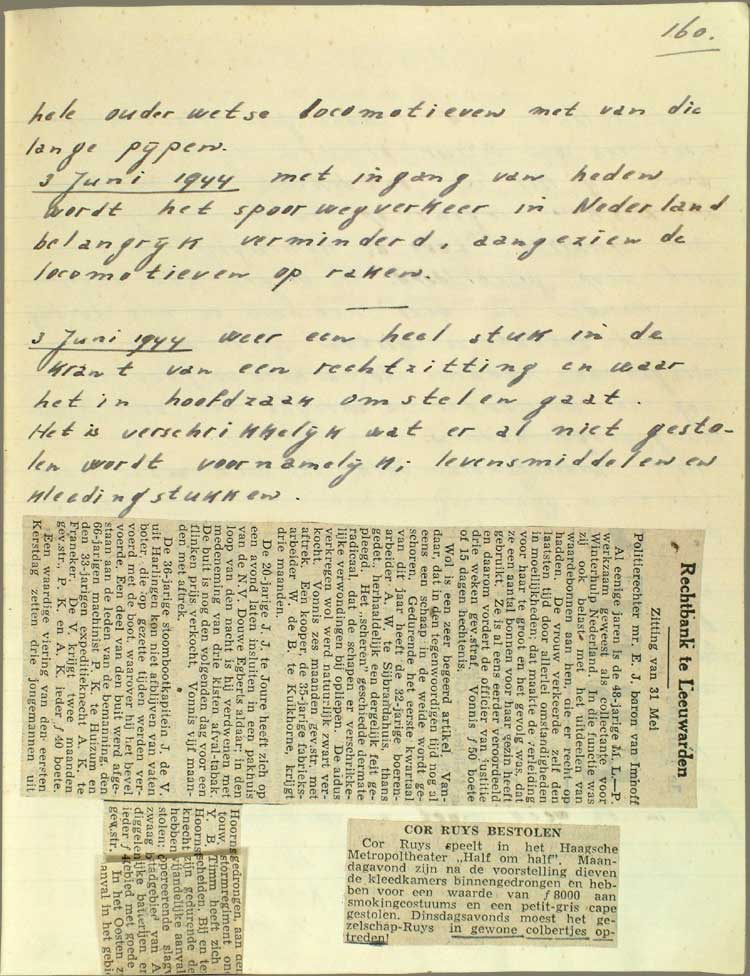 160.
hele ouderwetse locomotieven met van die
lange pijpen.
3 Juni 1944 met ingang van heden
wordt het spoorwegverkeer in Nederland
belangrijk verminderd, aangezien de
locomotieven op raken.
3 Juni 1944 weer een heel stuk in de
krant van een rechtzitting en waar
het in hoofdzaak om stelen gaat.
Het is verschrikkelijk wat er al niet gesto-
len wordt voornamelijk; levensmiddelen en
kledingstukken.
Rechtbank te Leeuwarden
Zitting van 31 Mei
Politierechter mr. E. J. baron van Imhoff
Al eenige jaren is de 48-jarige M. L.-P.
werkzaam geweest als collectante voor
Winterhulp Nederland. In die functie was
zij ook belast met het uitdeelen van
waardebonnen aan hen, die er recht op
hadden. De vrouw verkeerde zelf den
laatsten tijd door allerlei omstandigheden
in moeilijkheden; dat maakte de verleiding
voor haar te groot en het gevolg was, dat
ze een aantal bonnen voor haar gezin heeft
gebruikt. Ze is al eens eerder veroordeeld
en daarom vordert de officier van justitie
drie weken gev.straf. Vonnis f 50 boete
of 15 dagen hechtenis.
Wol is een zeer begeerd artikel. Van-
daar, dat in den tegenwoordigen tijd nog al
eens een schaap in de weide wordt ge-
schoren. Gedurende het eerste kwartaal
van dit jaar heeft de 32-jarige boeren-
arbeider A. W. te Sijbrandahuis, thans
gedet., herhaaldelijk een dergelijk feit ge-
pleegd. Het „scheren" geschiedde dermate
radicaal, dat de schapen er verschrikke-
lijke verwondingen bij opliepen. De aldus
verkregen wol werd natuurlijk zwart ver-
kocht. Vonnis zes maanden gev.str. met
aftrek. Een kooper, de 35-jarige fabrieks-
arbeider W. de B. te Kuikhorne, krijgt
drie maanden.
De 20-jarige A. J. te Joure heeft zich op
een avond laten insluiten in een pakhuis
van de N.V. Douwe Egberts aldaar; in den
loop van den nacht is hij verdwenen met
medeneming van drie kisten afval-tabak.
De buit is nog den volgenden dag voor een
flinken prijs verkocht. Vonnis vijf maan-
den met aftrek.
De 36-jarige stoombootkapitein J. de V.
uit Harlingen kon niet afblijven van vaten
boter, die op gezette tijden werden ver-
voerd met de boot, waarover hij het bevel
voerde. Een deel van den buit werd afge-
staan aan de leden van de bemanning, den
66-jarigen machinist P. K. te Huizum en
den 33-jarigen expeditieknecht A. K. te
Franeker. De V. krijgt twee maanden
gev.str., P. K. en A. K. ieder f 60 boete.
Een waardige viering van den eersten
Kerstdag zetten drie jongemannen uit
COR RUYS BESTOLEN
Cor Ruys speelt in het Haagsche
Metropoltheater „Half om half". Maan-
dagavond zijn na de voorstelling dieven
de kleedkamers binnengedrongen en heb-
ben voor een waarde van f 8000 aan
smokingcostuums en een petit-gris cape
gestolen. Dinsdagsavonds moest het ge-
zelschap-Ruys in gewone colbertjes op-
treden!